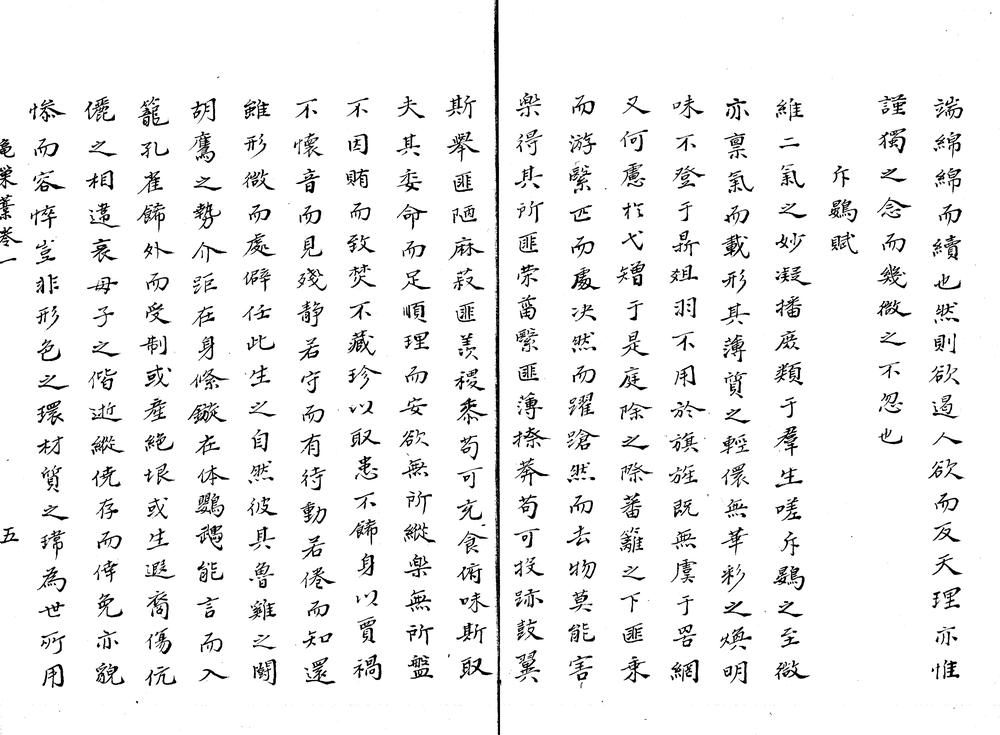 端綿綿而續也然則欲遏人欲而反天理亦惟
謹獨之念而幾微之不忽也
斥鷃賦
維二氣之妙凝播庶類于羣生嗟斥鷃之至微
亦禀氣而載形其薄質之輕儇無華彩之煥明
味不登于鼎俎羽不用於旗旌既無虞于罟網
又何慮於弋矰于是庭除之際蕃籬之下匪乘
而游繄匹而處决然而躍蹌然而去物莫能害
樂得其所匪榮菑繄匪薄搽莽苟可投跡鼓翼
斯舉匪陋麻菽匪羨稷黍苟可充食俯味斯取
夫其委命而足順理而安欲無所縱樂無所盤
不因賄而致焚不藏珍以取患不餙身以賈禍
不懷音而見殘静若守而有待動若倦而知還
雖形微而處僻任此生之自然彼其魯雞之鬪
胡鷹之勢介距在身絛鏇在体鸚鵡能言而入
籠孔雀餙外而受制或產絶垠或生遐裔傷伉
儷之相違哀母子之偕逝縱僥存而倖免亦貌
慘而容悴豈非形色之環材質之瑋為世所用
黾藻葉卷一
五